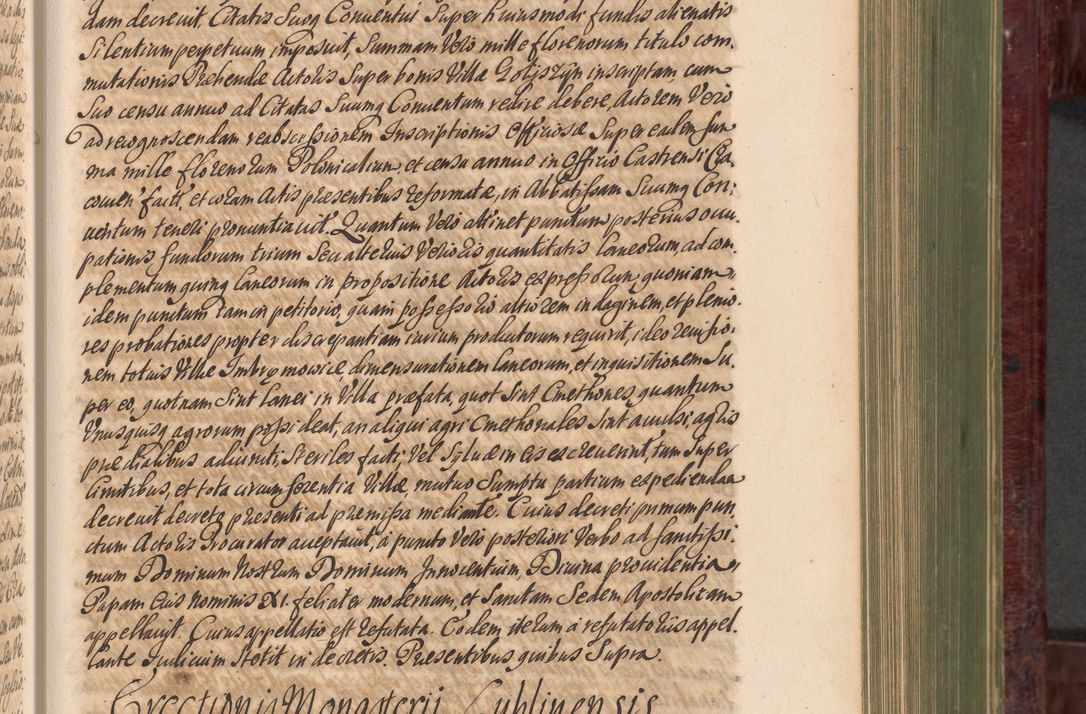 dam decreuit, Citatis Suoq Conventui Super huiusmodi fundis alienatis
Silentium perpetuum imposuit, Summam Vero mille florenorum titulo com.
mutationis Prebendæ Actoris Super bonis Villæ Goliszyn inscriptam cum
Suo censu annuo ad Citatas Suumq Conventum redire debere, Actorem Vero
ad recognoscendam reabscissionem Inscriptionis Officiosæ Super eadem sum
ma mille florenorum Polonicalium, et censu annuo in Officio Castrensi Cra,
covien' fact', et coram Actis presentibus reformatæ, in Abbatissam Suumq Con:
uentum teneri pronuntiauit. Quantum Vero attinet punctum posterius occu
pationis fundorum trium Seu alterius Verioris quantitatis laneorum, ad com
plementum quinq laneorum in propositione Actoris expressorum, quoniam
idem punctum tam in petitorio, quam possessorio altiorem indaginem, et plenio
res probationes propter discrepantiam iurium productorum requirit, ideo remissio:
nem totius Villæ Imbrymowice dimensurationem laneorum, et inquisitionem Su
per eo, quot nam Sint lanei in Villa præfata, quot Sint Cmethones, quantum
Unusquisq agrorum possideat, an aliqui agri Cmethonales Sint auulsi, agris
prædialibus adiuncti, Steriles facti, Vel Syluæ in eis excreuerint, tum Super
limitibus, et tota circumferentia Villæ, mutuo Sumptu partium expediendam
decreuit decreto presenti ad premissa mediante. Cuius decreti primum pun
ctum Actoris Procurator acceptauit, à puncto Vero posteriori Verbo ad Sanctissi.
mum Dominum Nostrum Dominum Innocentium, Diuina prouidentia
Papam Eius Nominis XI. feliciter modernum, et Sanctam Sedem Apostolicam
appellauit. Cuius appellatio est refutata. Eodem iterum à refutatoriis appel.
lante Iudicium Stetit in decretis. Presentibus quibus Supra.
Erectionis Monasterii Lublinensis